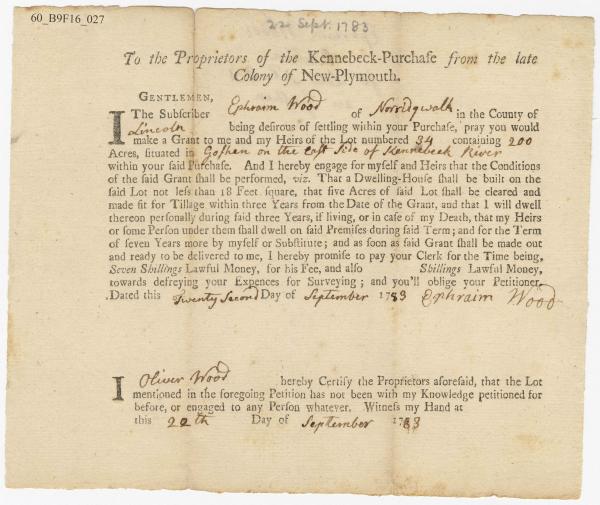 60_B9F16_027
22 Sept. 1783
To the Proprietors of the Kennebeck-Purchaſe from the late
Colony of New-Plymouth.
GENTLEMEN,
I The Subſcriber Ephraim Wood of Norridgwalk in the County of
Lincoln being deſirous of ſettling within your Purchaſe, pray you would
make a Grant to me and my Heirs of the Lot numbered 34 containing 200
Acres, ſituated in Goshen on the East Side of Kennebeck River
within your ſaid Purchaſe. And I hereby engage for myſelf and Heirs that the Conditions
of the ſaid Grant ſhall be performed, viz. That a Dwelling-Houſe ſhall be built on the
ſaid Lot not leſs than 18 Feet ſquare, that five Acres of ſaid Lot ſhall be cleared and
made fit for Tillage within three Years from the Date of the Grant, and that I will dwell
thereon perſonally during ſaid three Years, if living, or in caſe of my Death, that my Heirs
or ſome Perſon under them ſhall dwell on ſaid Premiſes during ſaid Term; and for the Term
of ſeven Years more by myſelf or Subſtitute; and as ſoon as ſaid Grant ſhall be made out
and ready to be delivered to me, I hereby promiſe to pay your Clerk for the Time being,
Seven Shillings Lawful Money, for his Fee, and alſo Shillings Lawful Money,
towards defreying your Expences for Surveying; and you'll oblige your Petitioner.
Dated this Twenty Second Day of September 1783 Ephraim Wood
I Oliver Wood hereby Certify the Proprietors aforeſaid, that the Lot
mentioned in the foregoing Petition has not been with my Knowledge petitioned for
before, or engaged to any Perſon whatever. Witneſs my Hand at
this 22th Day of September 1783